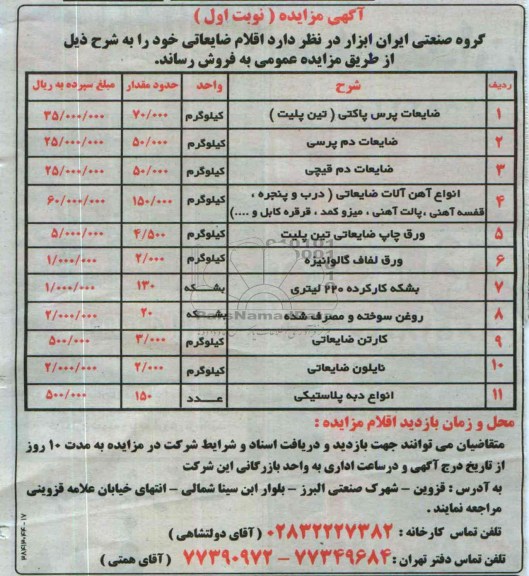 آگهی مزایده ( نوبت اول )
گروه صنعتی ایران ابزار در نظر دارد اقلام ضایعاتی خود را به شرح ذیل
از طریق مزایده عمومی به فروش رساند.
ردیف شرح واحد حدود مقدار مبلغ سپرده به ریال
۱ ضایعات پرس پاکتی ( تین پلیت ) کیلوگرم ۷۰/۰۰۰ ۳۵/۰۰۰/۰۰۰
۲ ضایعات دم پرسی کیلوگرم ۵۰/۰۰۰ ۲۵/۰۰۰/۰۰۰
۳ ضایعات دم قیچی کیلوگرم ۵۰/۰۰۰ ۲۵/۰۰۰/۰۰۰
۴ انواع آهن آلات ضایعاتی ( درب و پنجره ،
قفسه آهنی ، پالت آهنی ، میزو کمد ، قرقره کابل و ....) کیلوگرم ۱۵۰/۰۰۰ ۶۰/۰۰۰/۰۰۰
۵ ورق چاپ ضایعاتی تین پلیت کیلوگرم ۴/۵۰۰ ۵/۰۰۰/۰۰۰
۶ ورق لفاف گالوانیزه کیلوگرم ۲/۰۰۰ ۱/۰۰۰/۰۰۰
۷ بشکه کارکرده ۲۲۰ لیتری بشـــکه ۱۳۰ ۱/۰۰۰/۰۰۰
۸ روغن سوخته و مصرف شده بشـــکه ۲۰ ۲/۰۰۰/۰۰۰
۹ کارتن ضایعاتی کیلوگرم ۳/۰۰۰ ۵۰۰/۰۰۰
۱۰ نایلون ضایعاتی کیلوگرم ۲/۰۰۰ ۲/۰۰۰/۰۰۰
۱۱ انواع دبه پلاستیکی عـــدد ۱۵۰ ۵۰۰/۰۰۰
ParsNamadData
محل و زمان بازدید اقلام مزایده :
متقاضیان می توانند جهت بازدید و دریافت اسناد و شرایط شرکت در مزایده به مدت ۱۰ روز
از تاریخ درج آگهی و درساعت اداری به واحد بازرگانی این شرکت
به آدرس : قزوین – شهرک صنعتی البرز – بلوار ابن سینا شمالی – انتهای خیابان علامه قزوینی
مراجعه نمایند .
تلفن تماس کارخانه : ۰۲۸۳۲۲۲۷۳۸۲ ( آقای دولتشاهی )
تلفن تماس دفتر تهران : ۷۷۳۴۹۶۸۴ – ۷۷۳۹۰۹۷۲ ( آقای همتی )